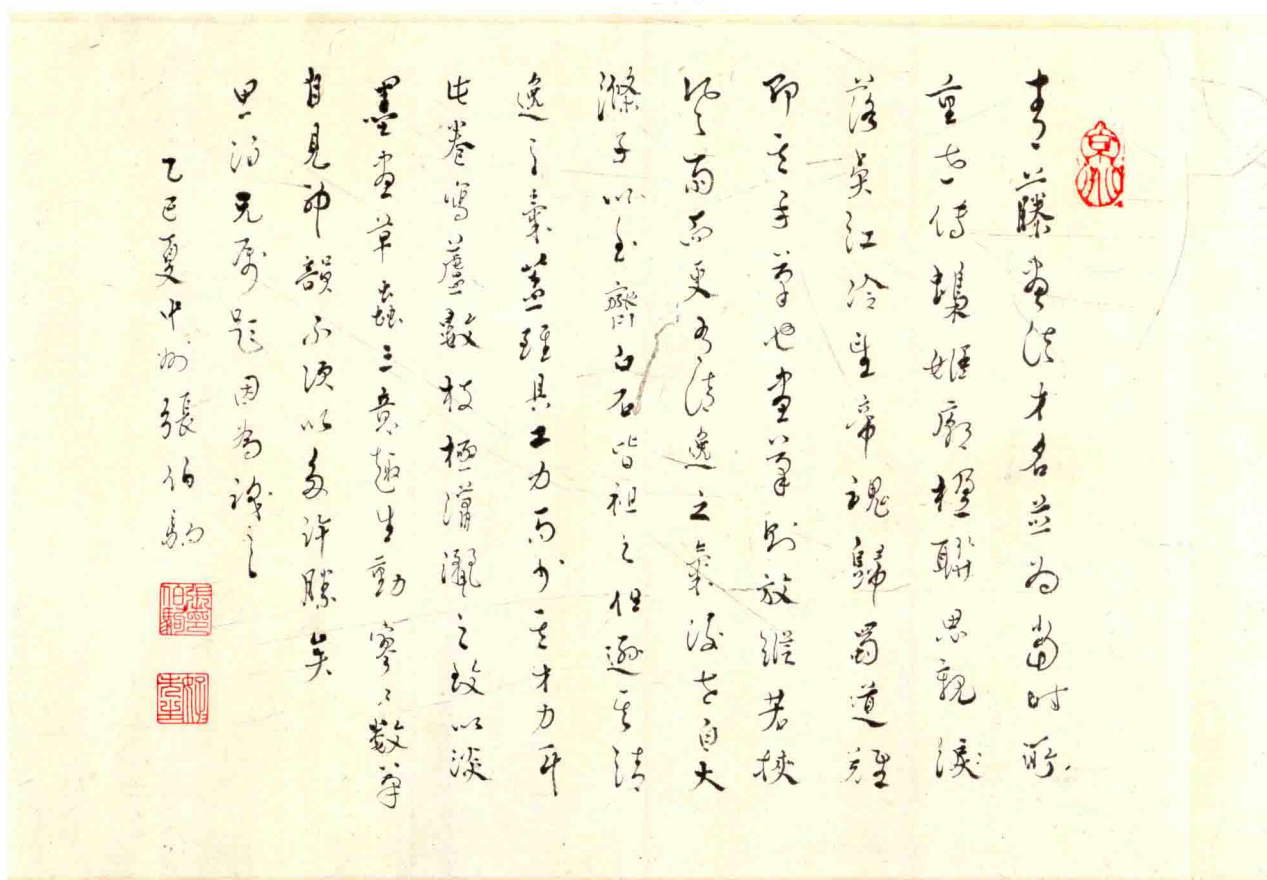 京兆
青藤畫法才名並为當时所
重世傳蟂姬廟楹聯思親淚
落吳江冷望帝魂歸蜀道難
即其手筆也畫筆則放縱若挾
風雨而更有清逸之氣後世自大
滌子以至齊白石皆祖之但遜其清
逸之氣蓋雖具工力而少其才力耳
此卷寫蘆數枝極瀟灑之致以淡
墨畫草蟲三意趣生動寥〻數筆
自見神韻不須以多許勝矣
思泊兄屬題因為識之
乙巳夏中州張伯駒
張伯駒印